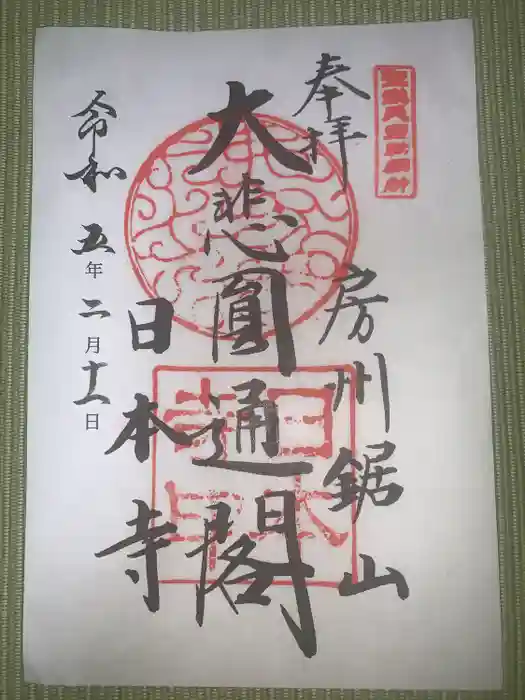 奉拝
房州鋸山
大悲圓通閣
日本寺
令和五年二月十一日